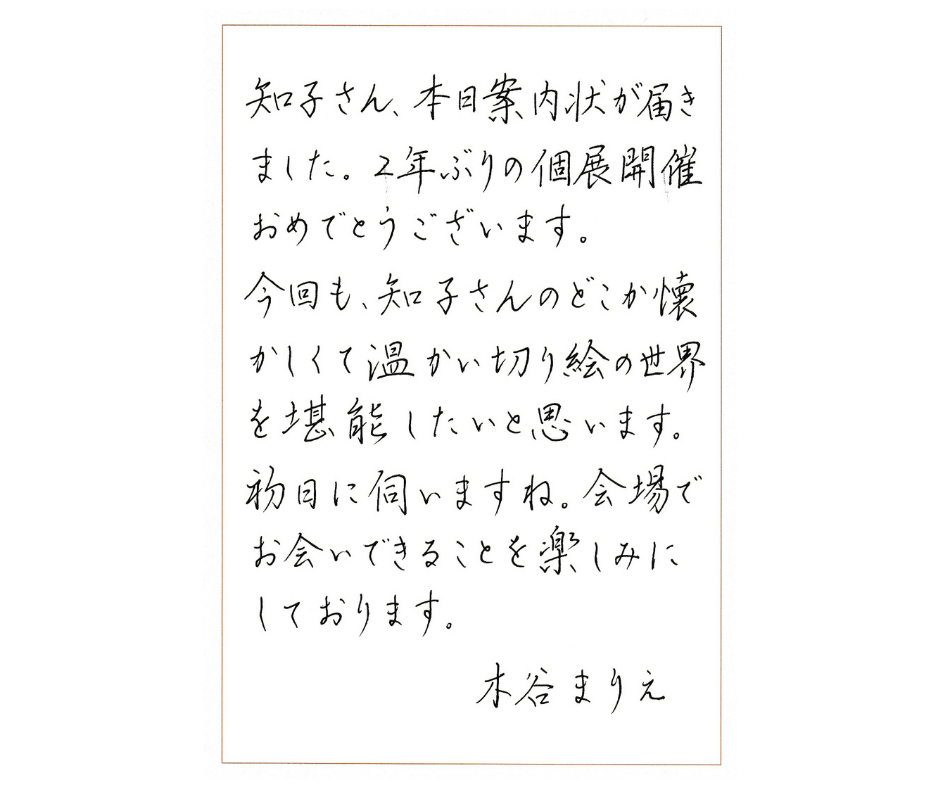 知子さん、本日案内状が届き
ました。2年ぶりの個展開催
おめでとうございます。
今回も、知子さんのどこか懐
かしくて温かい切り絵の世界
を堪能したいと思います。
初日に伺いますね。会場で
お会いできることを楽しみに
しております。
木谷まりえ